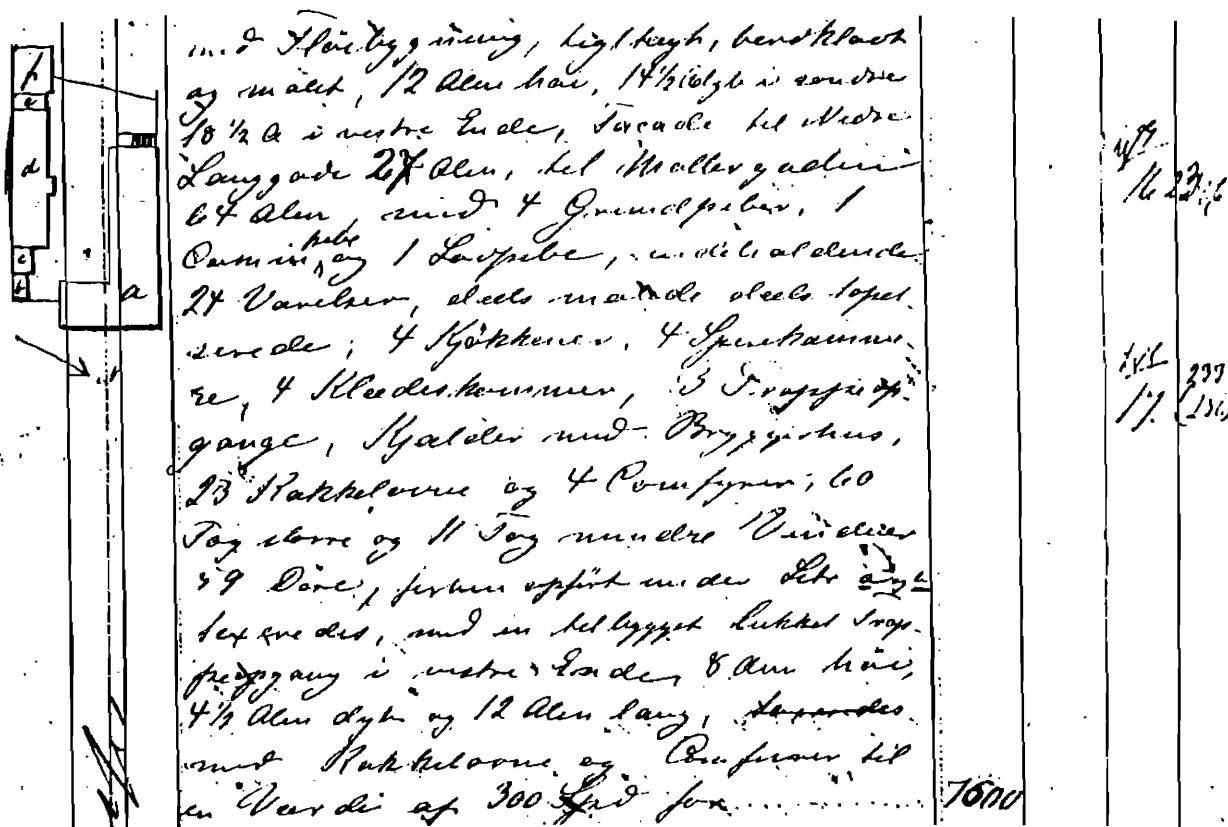 med Flöibygning, tegltægt, bordklædt
og malet, 12 Alen høi, 14½ dyb i søndre
18½ A i vestre Ende, Facade til Nedre
Langgade 27 Alen, til Møllergaden
64 Alen, med 4 Grundpiber, 1
Camin pibe og 1 Løspibe, indeholdende
24 Værelser, deels malede deels tapet-
serede, 4 Kjøkkener, 4 Spiskamme-
re, 4 Klædeskammer, 3 Trappeop-
gange, Kjælder med Bryggerhus,
23 Kakkelovne og 4 Comfyrer, 60
Fag større og 11 Fag mindre Vinduer
59 Döre, forhen opført under Litr a og b
taxeredes, med en tilbygget lukket Trap-
peopgang i vestre Ende, 8 Alen høi,
4½ Alen dyb og 12 Alen lang, taxeredes
med Kakkelovne og Comfurer til
en Værdi af 300 Spd for 7600
f
e
d
c
b
a
16
17